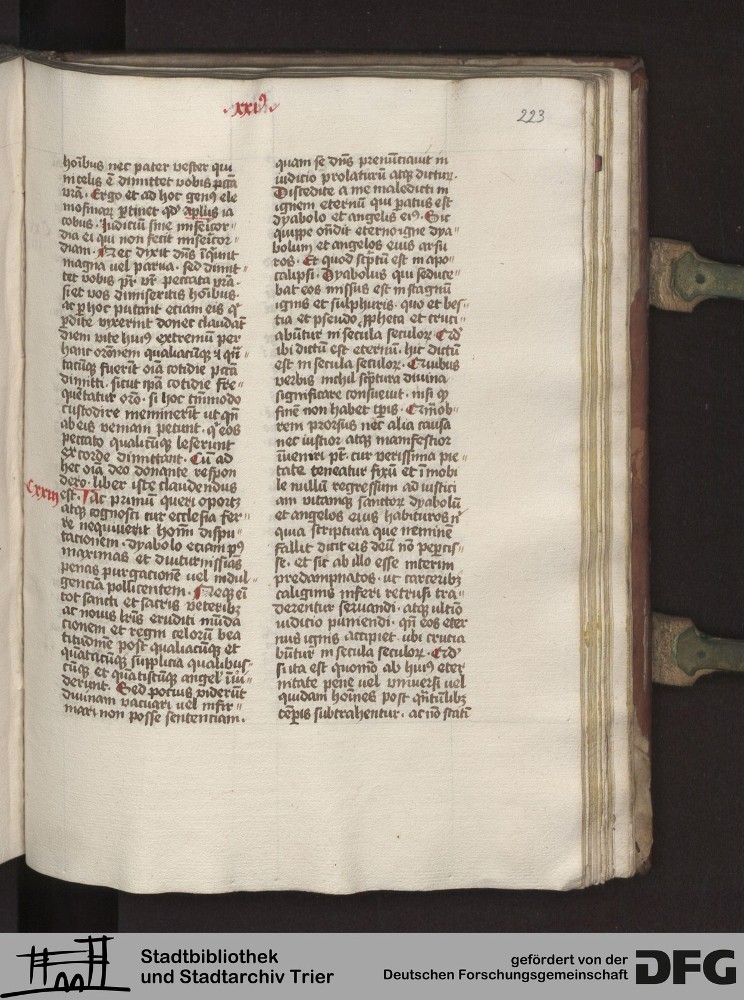 xxi9
223
hoı̄bus nec pater vester qui
in celis ē dimittet vobis pctā
vrā. Ergo et ad hoc gen9 ele
mosinarū ꝑtinet qd' aplus ia
cobus. Iudiciū sine misericor
dia ei qui non fecit misericor
diam. Nec dixit dn̄s inquit
magna vel parua. sed dimit
tet vobis pr̄ vr̄ peccata vrā.
si et vos dimiseritis hoı̄bus.
ac ꝑ hoc putant etiam eis qͥ
ꝑdite vixerint donec claudāt
diem vite hui9 extremū per
hanc or̄onem qualiacūqꝫ
tacūqꝫ fuerīt oīa cotidie pctā
dimitti. sicut ipā cotidie fre
quētatur or̄o. si hoc tm̄modo
custodire meminerīt vt qn̄
ab eis veniam petunt. qͥ eos
peccato qualicūqꝫ leserunt
ex corde dimittant. Cū ad
hec oīa deo donante respon
dero. liber iste claudendus
Cxxiii est. Iac primū queri oportꝫ
atqꝫ cognosci cur ecclesia fer
re nequiuerit hom̄ dispu
tationem. dyabolo etiam pꝰ
maximas et diuturnissias
penas purgationē vel indul
gencia pollicentem. Neqꝫ eī
tot sancti et sacris veteribꝫ
ac nouis lr̄is eruditi mūda
cionem et regni celorū bea
titudinē post qualiacūqꝫ et
quātacūqꝫ supplicia qualibus
cūqꝫ et quātiscūqꝫ angel' īui
derunt. Sed potius viderūt
diuinam vacuari vel infir
mari non posse sententiam.
quam se dn̄s prenūciauit in
iudicio prolaturū atqꝫ dictur.
Discedite a me maledicti in
ignem eternū qui patus est
dyabolo et angelis ei9. Sic
quippe on̄dit eterno igne dya
bolum et angelos eius arsu
ros. Et quod scptū est in apo
calipsi. Dyabolus qui seduce
bat eos missus est in stagnū
ignis et sulphuris. quo et bes
tia et pseudo ꝓpheta et cruci
abūtur in secula seculoꝝ. Qd'
ibi dictū est eternū. hic dictū
est in secula seculoꝝ. Quibus
verbis nichil sc̄ptura diuina
significare consueuit. nisi qͥ
finē non habet tp̄is. Quāob
rem prorsus nec alia causa
nec iustior atqꝫ manifestior
inueniri pt̄. cur verissima pie
tate teneatur fixū et īmobi
le nullū regressum ad iustici
am vitamqꝫ sanctoꝝ dyabolū
et angelos eius habituros nͥ
quia scriptura que neminē
fallit dicit eis deū nō peperciss
se. et sic ab illo esse interim
predampnatos. vt carceribꝫ
caliginis inferi retrusi tra
derentur seruandi. atqꝫ ultīo
iudicio puniendi. qn̄ eos eter
nus ignis accipiet. vbi crucia
būtur in secula seculoꝝ. Qd'
si ita est quomō ab hui9 eter
nitate pene vel vniuersi vel
quidam hoı̄nes post qn̄tūlibꝫ
tēpis subtrahentur. ac nō statī
Stadtbibliothek
und Stadtarchiv Trier
gefördert von der
Deutschen Forschungsgemeinschaft
DFG